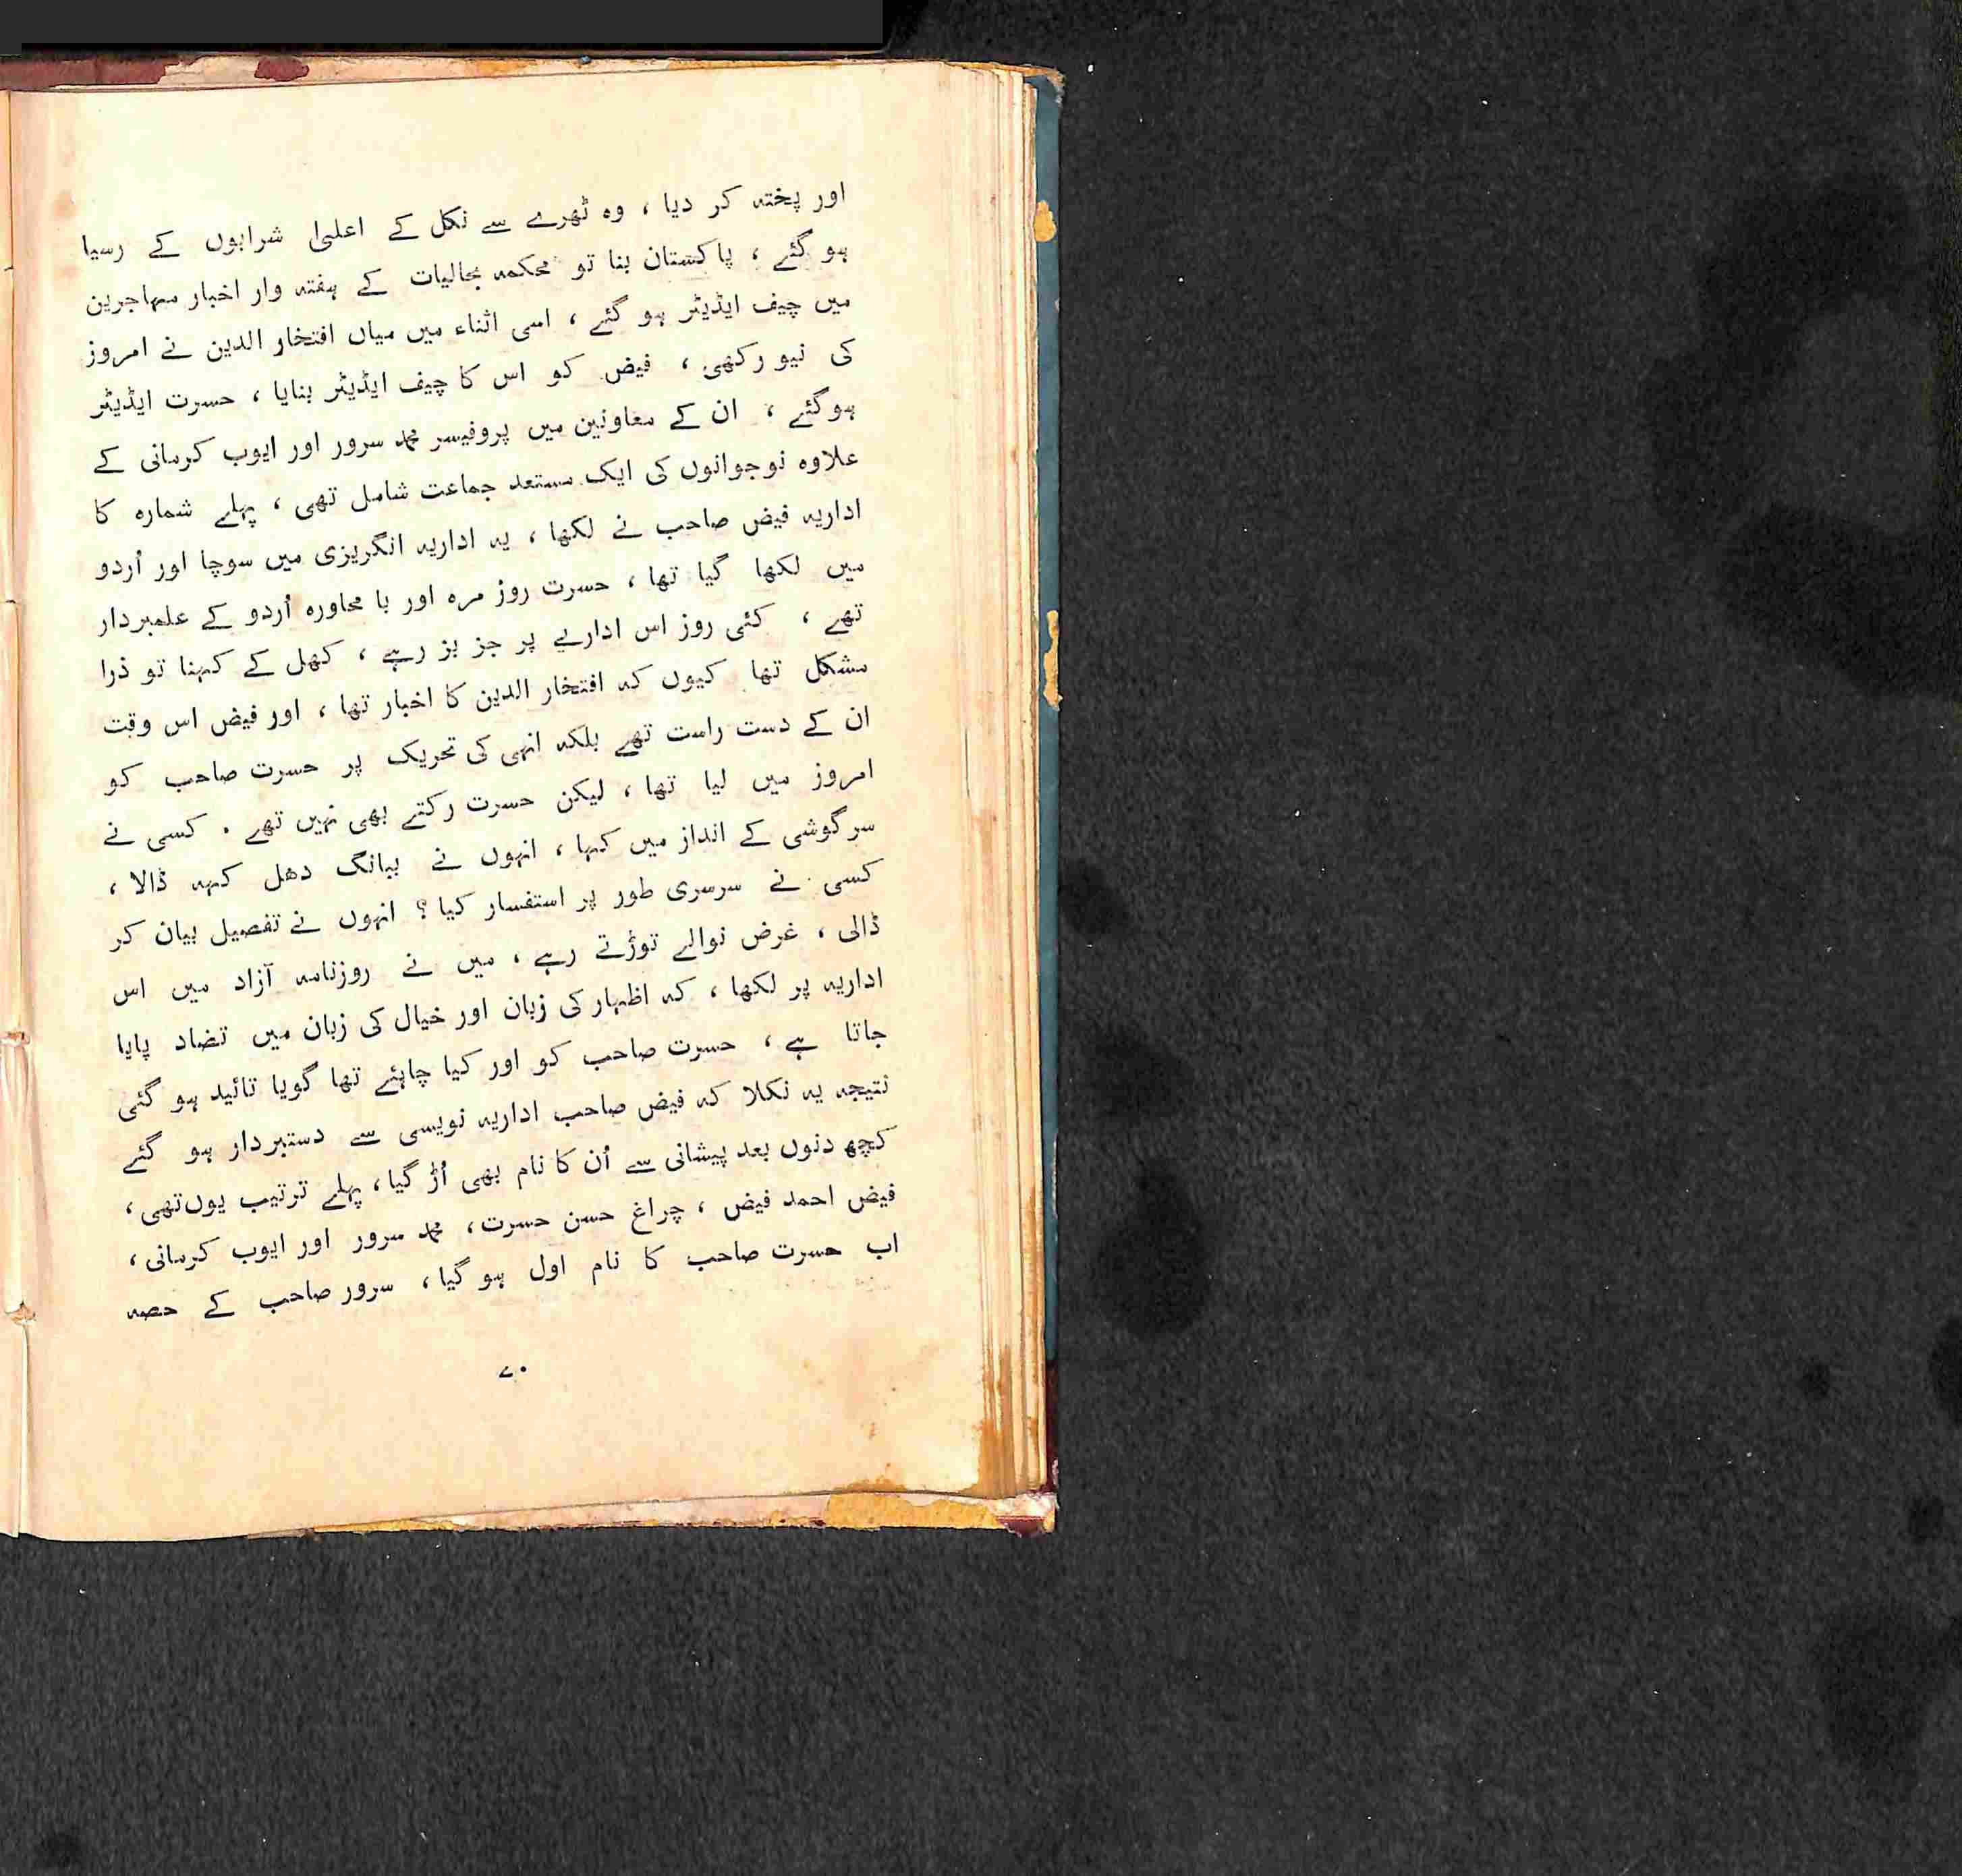 اور پختہ کر دیا ، وہ ٹھرے سے نکل کے اعلیٰ شرابوں کے رسیا
ہو گئے ، پاکستان بنا تو محکمہ بحالیات کے ہفتہ وار اخبار مہاجرین
میں چیف ایڈیٹر ہو گئے ، اسی اثناء میں میاں افتخار الدین نے امروز
کی نیو رکھی ، فیض کو اس کا چیف ایڈیٹر بنایا ، حسرت ایڈیٹر
ہوگئے ، ان کے معاونین میں پروفیسر محمد سرور اور ایوب کرمانی کے
علاوہ نوجوانوں کی ایک مستعد جماعت شامل تھی ، پہلے شمارہ کا
اداریہ فیض صاحب نے لکھا ، یہ اداریہ انگریزی میں سوچا اور اُردو
میں لکھا گیا تھا ، حسرت روز مرہ اور با محاورہ اُردو کے علمبردار
تھے ، کئی روز اس اداریے پر جز بز رہے ، کھل کے کہنا تو ذرا
مشکل تھا کیوں کہ افتخار الدین کا اخبار تھا ، اور فیض اس وقت
ان کے دست راست تھے بلکہ انہی کی تحریک پر حسرت صاحب کو
امروز میں لیا تھا ، لیکن حسرت رکتے بھی نہیں تھے ۔ کسی نے
سرگوشی کے انداز میں کہا ، انہوں نے ببانگ دھل کہہ ڈالا ،
کسی نے سرسری طور پر استفسار کیا ؟ انہوں نے تفصیل بیان کر
ڈالی ، غرض نوالے توڑتے رہے ، میں نے روزنامہ آزاد میں اس
اداریہ پر لکھا ، کہ اظہار کی زبان اور خیال کی زبان میں تضاد پایا
جاتا ہے ، حسرت صاحب کو اور کیا چاہئے تھا گویا تائید ہو گئی
نتیجہ یہ نکلا کہ فیض صاحب اداریہ نویسی سے دستبردار ہو گئے
کچھ دنوں بعد پیشانی سے اُن کا نام بھی اُڑ گیا ، پہلے ترتیب یوں تھی ،
فیض احمد فیض ، چراغ حسن حسرت ، محمد سرور اور ایوب کرمانی ،
اب حسرت صاحب کا نام اول ہو گیا ، سرور صاحب کے حصہ
۷۰